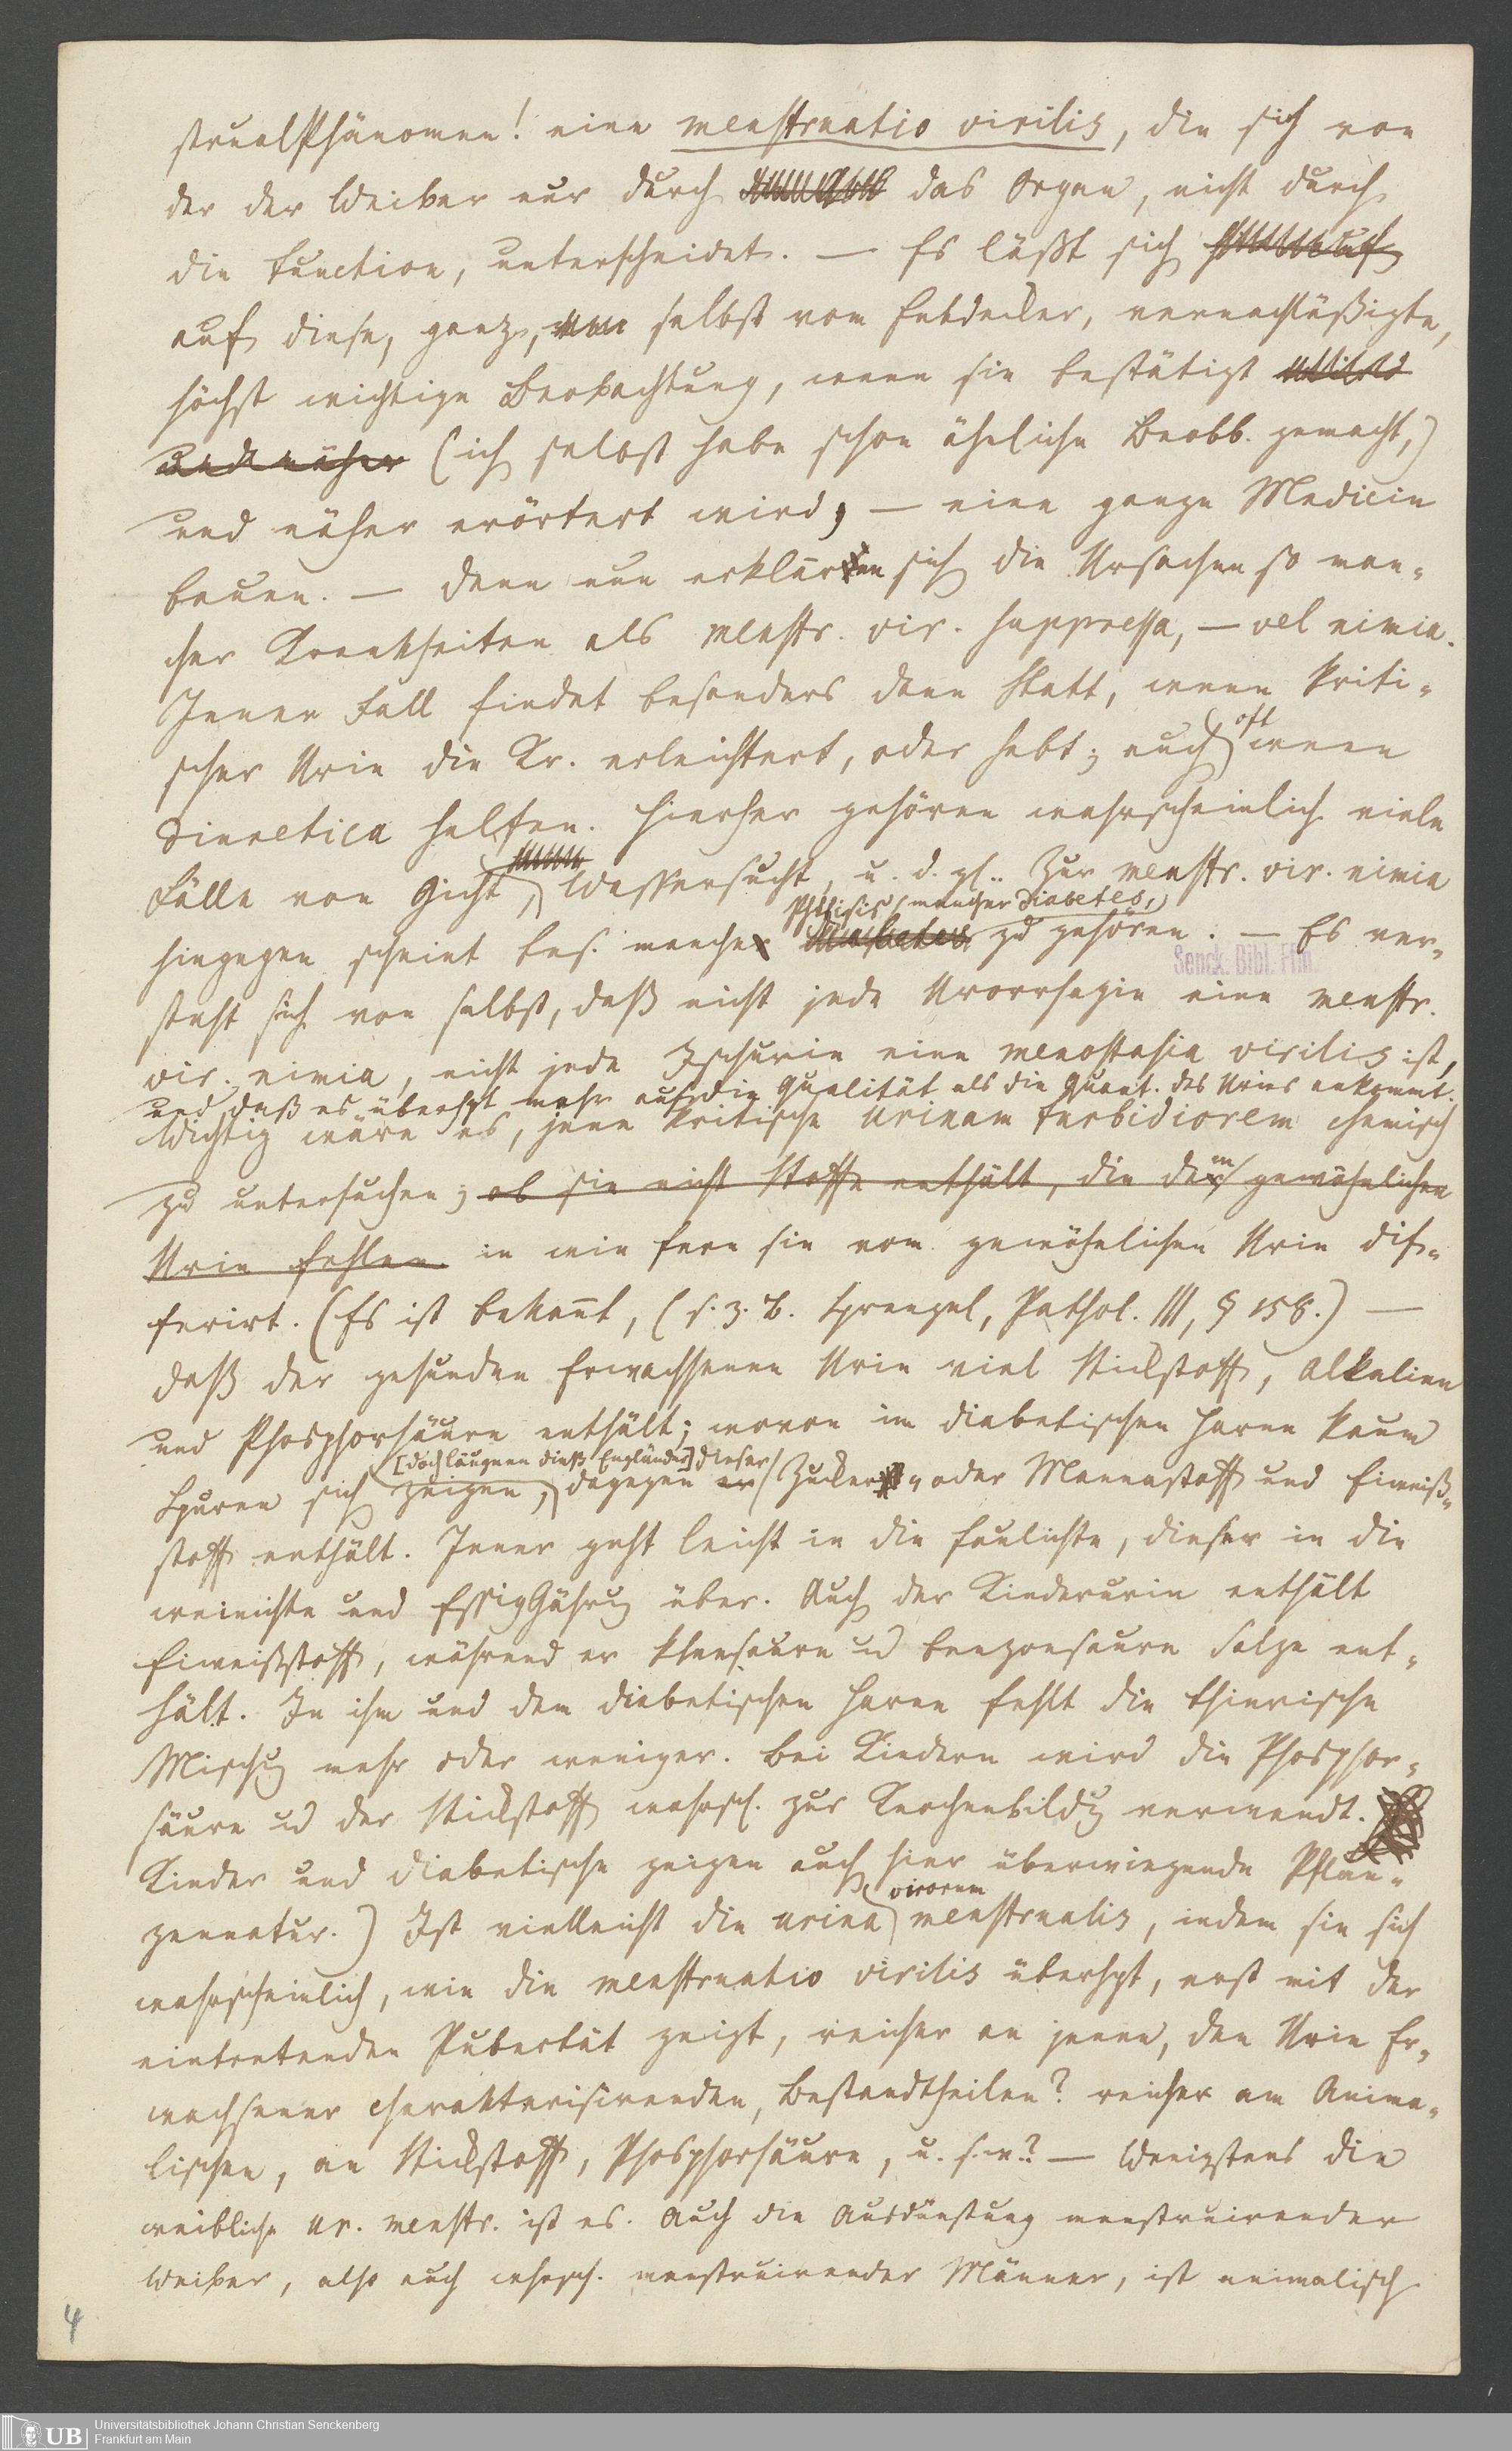 strualPhänomen! eine menstruatio virilis, die sich von
der der Weiber nur durch das Organ, nicht durch
die Function, unterscheidet. — Es läßt sich
auf diese, ganz, selbst vom Entdecker, vernachläßigte,
höchst wichtige Beobachtung, wenn sie bestätigt
und näher (ich selbst habe schon ähnliche Beobb. gemacht,)
und näher erörtert wird, — eine ganze Medicin
bauen. — Denn nun erklären sich die Ursachen so man-
cher Krankheiten als menstr. vir. suppressa, — vel nimia.
Jener Fall findet besonders dann Statt, wenn kriti-
scher Urin die Kr. erleichtert, oder hebt; auch oft wenn
Diuretica helfen. Hierher gehören wahrscheinlich viele
Fälle von Gicht, Wassersucht, u. d. gl.. Zur menstr. vir. nimia
Phthisis, mancher Diabetes,
hingegen scheint bes. manche zu gehören. — Es ver-
Senck. Bibl. Ffm.
steht sich von selbst, daß nicht jede Urorrhagie eine menstr.
vir. nimia, nicht jede Ischurie eine menostasia virilis ist,
und daß es überhpt mehr auf die Qualität als die Quant. des Urins ankommt.
Wichtig wäre es, jene kritische urinam turbidiorem chemisch
zu untersuchen; ob sie nicht Stoffe enthält, die dem gewöhnlichen
Urin fehlen. in wie fern sie vom gewöhnlichen Urin dif-
ferirt. (Es ist bekannt, (s. z. B. Sprengel, Pathol. III, § 158.) —
daß der gesunden Erwachsenen Urin viel Stickstoff, Alkalien
und Phosphorsäure enthält; wovon im diabetischen Harne kaum
[doch läugnen dieß Engländer] dieser
Spuren sich zeigen, dagegen er Zucker- oder Mannastoff und Eiweiß-
stoff enthält. Jener geht leicht in die faulichte, dieser in die
weinichte und EssigGährug über. Auch der Kinderurin enthält
Eiweißstoff, während er kleesaure u benzoesaure Salze ent-
hält. In ihm und dem diabetischen Harne fehlt die thierische
Mischug mehr oder weniger. Bei Kindern wird die Phosphor-
säure u der Stickstoff wahrsch. zur Knochenbildug verwendt.
Kinder und Diabetische zeigen auch hier überwiegende Pflan-
zennatur.) Ist vielleicht die urina virorum menstrualis, indem sie sich
wahrscheinlich, wie die menstruatio virilis überhpt, erst mit der
eintretenden Pubertät zeigt, reicher an jenen, den Urin Er-
wachsener charakterisirenden, Bestandtheilen? reicher am Anima-
lischen, an Stickstoff, Phosphorsäure, u. s. w.? — Wenigstens die
weibliche ur. menstr. ist es. Auch die Ausdünstung menstruirender
Weiber, also auch whrsch. menstruirender Männer, ist animalisch
4
Universitätsbibliothek Johann Christian Senckenberg
Frankfurt am Main
UB